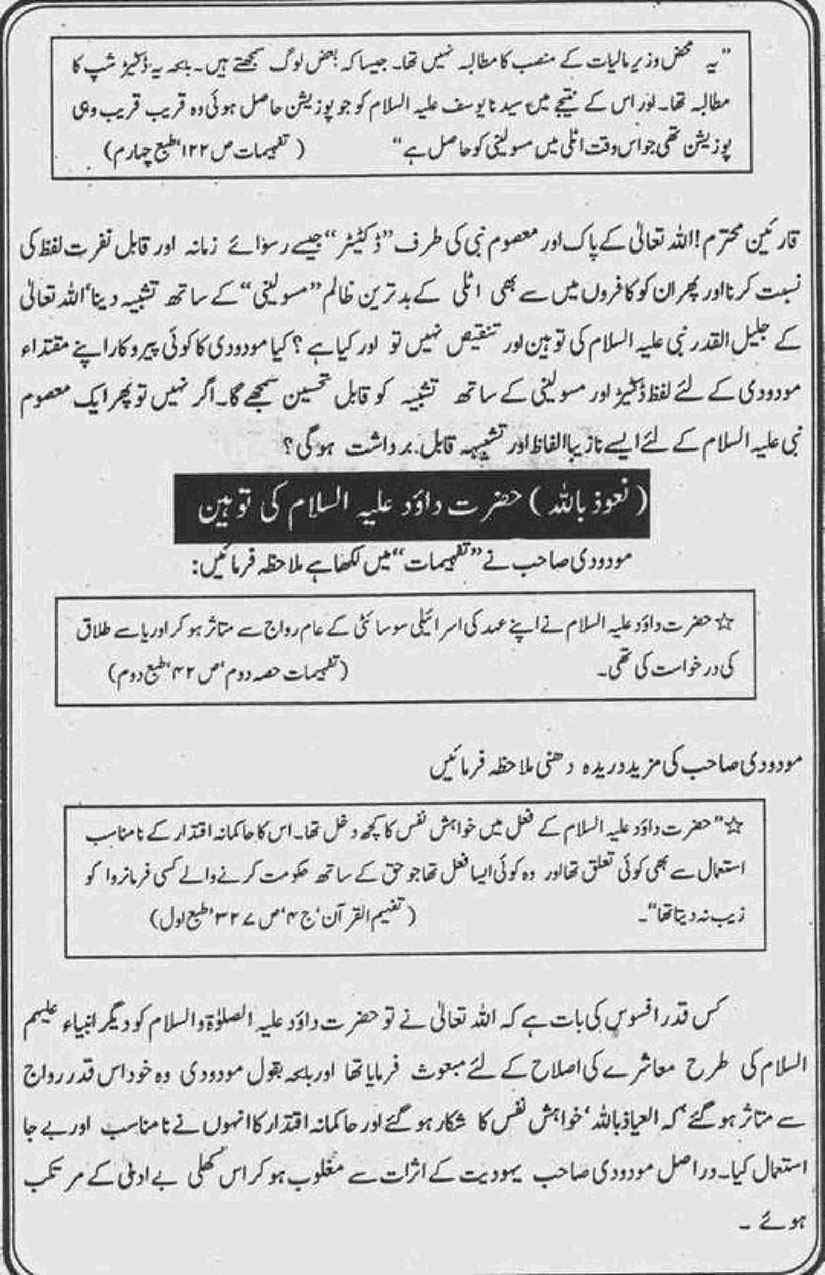 "یہ محض وزیر مالیات کے منصب کا مطالبہ نہیں تھا۔ جیسا کہ بعض لوگ سمجھتے ہیں۔ بلحہ یہ ڈکٹیڑ شپ کا
مطالبہ تھا۔ اور اس کے نتیجے میں سیدنا یوسف علیہ السلام کو جو پوزیشن حاصل ہوئی وہ قریب قریب وہی
پوزیشن تھی جو اس وقت اٹلی میں مسولینی کو حاصل ہے" (تفہیمات ص ۱۲۲' طبع چہارم)
قارئین محترم! اللہ تعالیٰ کے پاک اور معصوم نبی کی طرف "ڈکٹیٹر" جیسے رسوائے زمانہ اور قابل نفرت لفظ کی
نسبت کرنا اور پھر ان کو کافروں میں سے بھی اٹلی کے بدترین ظالم "مسولینی" کے ساتھ تشبیہ دینا' اللہ تعالیٰ
کے جلیل القدر نبی علیہ السلام کی توہین اور تنقیص نہیں تو اور کیا ہے؟ کیا مودودی کا کوئی پیروکار اپنے مقتداء
مودودی کے لئے لفظ ڈکٹیڑ اور مسولینی کے ساتھ تشبیہ کو قابل تحسین سمجھے گا۔ اگر نہیں تو پھر ایک معصوم
نبی علیہ السلام کے لئے ایسے نازیبا الفاظ اور تشبیہہ قابل برداشت ہوگی؟
(نعوذ باللہ) حضرت داؤد علیہ السلام کی توہین
مودودی صاحب نے "تفہیمات" میں لکھا ہے ملاحظہ فرمائیں:
☆ حضرت داؤد علیہ السلام نے اپنے عہد کی اسرائیلی سوسائٹی کے عام رواج سے متاثر ہو کر اوریا سے طلاق
کی درخواست کی تھی۔ (تفہیمات حصہ دوم' ص ۴۲' طبع دوم)
مودودی صاحب کی مزید دریدہ دھنی ملاحظہ فرمائیں
☆ "حضرت داؤد علیہ السلام کے فعل میں خواہش نفس کا کچھ دخل تھا۔ اس کا حاکمانہ اقتدار کے نامناسب
استعمال سے بھی کوئی تعلق تھا اور وہ کوئی ایسا فعل تھا جو حق کے ساتھ حکومت کرنے والے کسی فرمانروا کو
زیب نہ دیتا تھا"۔ (تفہیم القرآن' ج ۴' ص ۳۲۷' طبع اول)
کس قدر افسوس کی بات ہے کہ اللہ تعالیٰ نے تو حضرت داؤد علیہ الصلوٰۃ والسلام کو دیگر انبیاء علیہم
السلام کی طرح معاشرے کی اصلاح کے لئے مبعوث فرمایا تھا اور بلحہ بقول مودودی وہ خود اس قدر رواج
سے متاثر ہو گئے' کہ العیاذ باللہ' خواہش نفس کا شکار ہو گئے اور حاکمانہ اقتدار کا انہوں نے نامناسب اور بے جا
استعمال کیا۔ دراصل مودودی صاحب یہودیت کے اثرات سے مغلوب ہو کر اس کھلی بے ادبی کے مرتکب
ہوئے۔